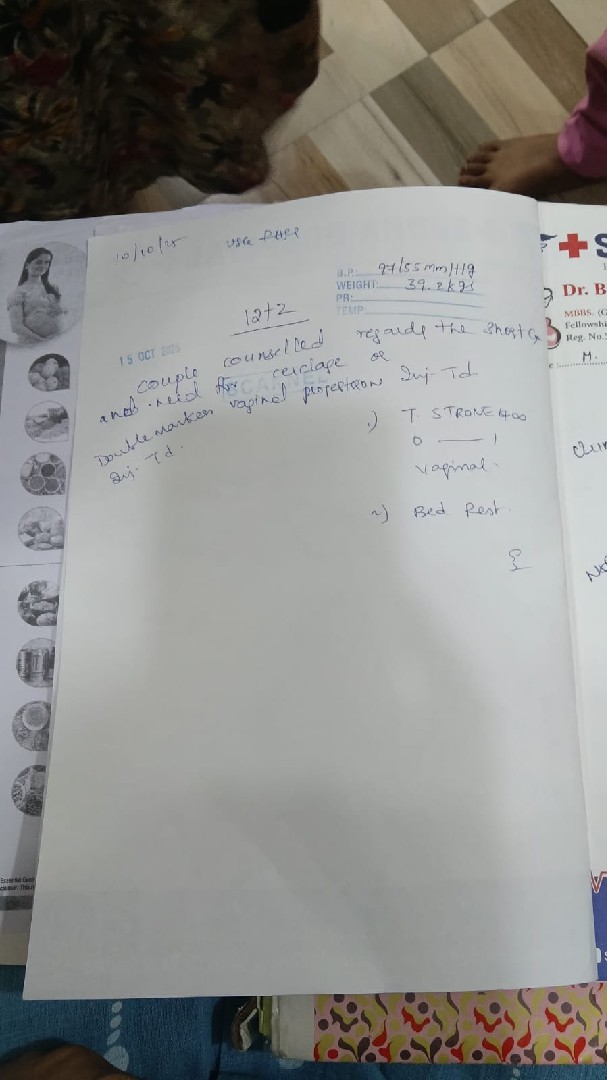 10/10/25
B.P: 97/55 mm/Hg
WEIGHT: 39.2kgs
PR:
TEMP:
12+2
15 OCT 2025
Couple counselled regards the short Cx
and need for cerclage or
vaginal progesteron
Double marker
Inj. Td.
Inj Td
1) T. STRONE 400
0 — 1
vaginal.
2) Bed Rest.
Dr. B
MBBS. (G
Fellowshi
Reg. No.
M.